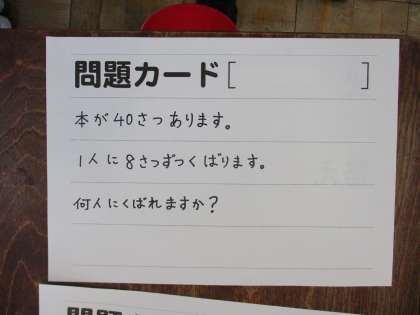 問題カード[ ]
本が40さつあります。
1人に8さつずつくばります。
何人にくばれますか？
問題カード